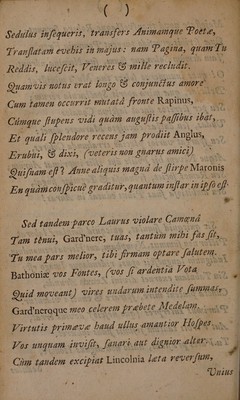 ( )
Sedulus insequeris, transfers Animamque Poetæ,
Translatam evehis in majus: nam Pagina, quam Tu
Reddis, lucescit, Veneres & mille recludit.
Quamvis notus erat longo & conjunctus amore
Cum tamen occurrit mutatâ fronte Rapinus,
Cúmque stupens vidi quàm augustis passibus ibat,
Et quali splendore recens jam prodiit Anglus,
Erubui, & dixi, (veteris non gnarus amici)
Quisnam est? Anne aliquis magnâ de stirpe Maronis
En quàm conspicuè graditur, quantum instar in ipso est.
Sed tandem parco Laurus violare Camœnâ
Tam tenui, Gard'nere, tuas, tantùm mihi fas sit,
Tu mea pars melior, tibi firmam optare salutem.
Bathoniæ vos Fontes, (vos si ardentia Vota
Quid moveant) vires undarum intendite summas,
Gard'neroque meo celerem præbete Medelam.
Virtutis primævæ haud ullus amantior Hospes
Vos unquam invisit, sanari aut dignior alter.
Cùm tandem excipiat Lincolnia læta reversum,
Unius